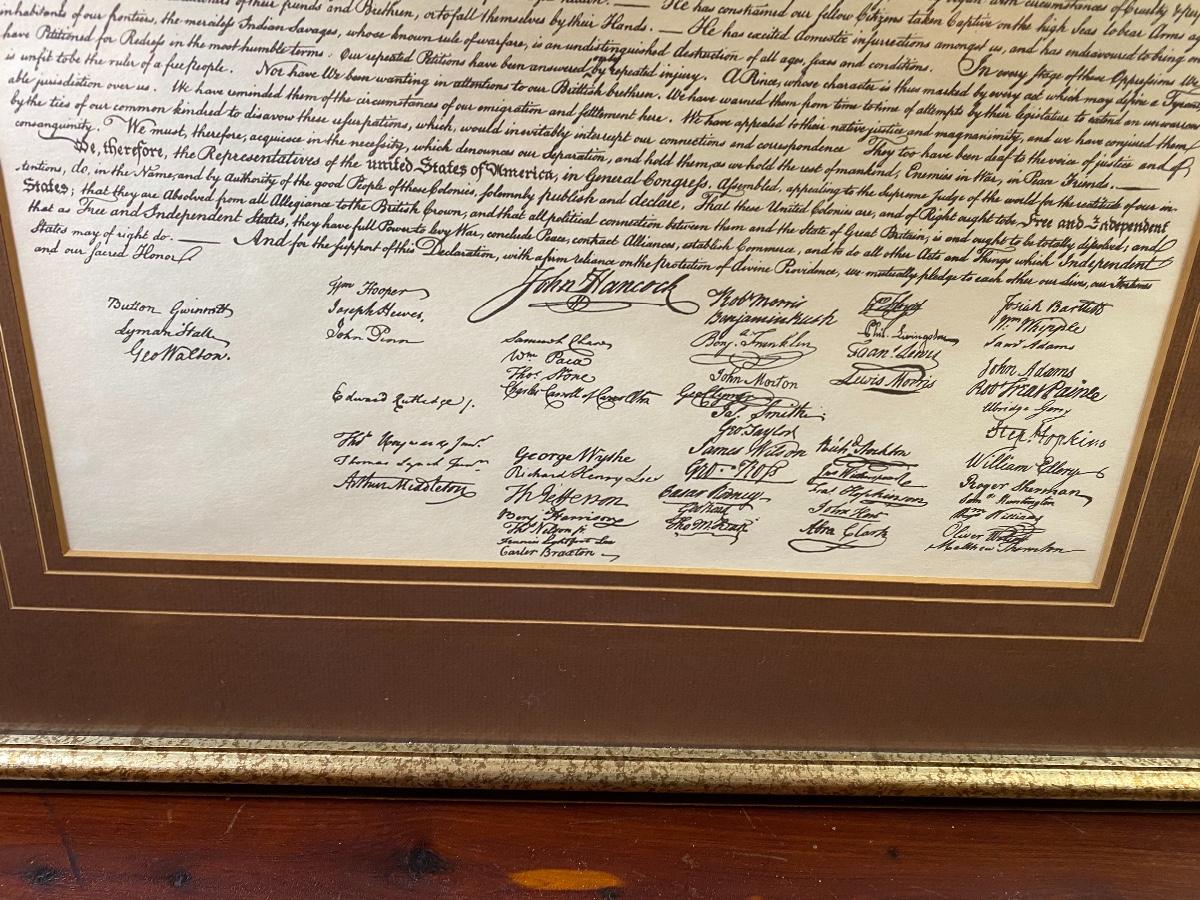 of their friends and Brethren, or to fall themselves by their Hands. — He has constrained our fellow Citizens taken Captive on the high Seas to bear Arms
inhabitants of our frontiers, the merciless Indian Savages, whose known rule of warfare, is an undistinguished destruction of all ages, sexes and conditions. — He has excited domestic insurrections amongst us, and has endeavoured to bring on
have Petitioned for Redress in the most humble terms. Our repeated Petitions have been answered only by repeated injury. In every stage of these Oppressions We
is unfit to be the ruler of a free people. Nor have We been wanting in attentions to our Brittish brethren. A Prince, whose character is thus marked by every act which may define a Tyrant,
able jurisdiction over us. We have reminded them of the circumstances of our emigration and settlement here. We have warned them from time to time of attempts by their legislature to extend an unwarrant
by the ties of our common kindred to disavow these usurpations, which, would inevitably interrupt our connections and correspondence We have appealed to their native justice and magnanimity, and we have conjured them
consanguinity. We must, therefore, acquiesce in the necessity, which denounces our Separation, and hold them, as we hold the rest of mankind, Enemies in War, in Peace Friends. — They too have been deaf to the voice of justice and of
We, therefore, the Representatives of the united States of America, in General Congress, Assembled, appealing to the Supreme Judge of the world for the rectitude of our in-
tentions, do, in the Name, and by Authority of the good People of these Colonies, solemnly publish and declare, That these United Colonies are, and of Right ought to be Free and Independent
States; that they are Absolved from all Allegiance to the British Crown, and that all political connection between them and the State of Great Britain, is and ought to be totally dissolved; and
that as Free and Independent States, they have full Power to levy War, conclude Peace, contract Alliances, establish Commerce, and to do all other Acts and Things which Independent
States may of right do. — And for the support of this Declaration, with a firm reliance on the Protection of divine Providence, we mutually pledge to each other our Lives, our Fortunes
and our sacred Honor
Button Gwinnett
Lyman Hall
Geo Walton.
Wm Hooper
Joseph Hewes,
John Penn
Edward Rutledge /.
Thos Heyward Junr.
Thomas Lynch Junr.
Arthur Middleton
John Hancock
Samuel Chase
Wm. Paca
Thos. Stone
Charles Carroll of Carrollton
George Wythe
Richard Henry Lee
Th Jefferson
Benj Harrison
Thos Nelson jr.
Francis Lightfoot Lee
Carter Braxton
Robt Morris
Benjamin Rush
Benj. Franklin
John Morton
Geo Clymer
Jas. Smith
Geo. Taylor
James Wilson
Geo. Ross
Caesar Rodney
Geo Read
Tho M:Kean
Phil. Livingston
Frans. Lewis
Lewis Morris
Richd. Stockton
Jno Witherspoon
Fras. Hopkinson
John Hart
Abra Clark
Josiah Bartlett
Wm. Whipple
Saml Adams
John Adams
Robt Treat Paine
Elbridge Gerry
Step. Hopkins
William Ellery
Roger Sherman
Saml. Huntington
Wm. Williams
Oliver Wolcott
Matthew Thornton